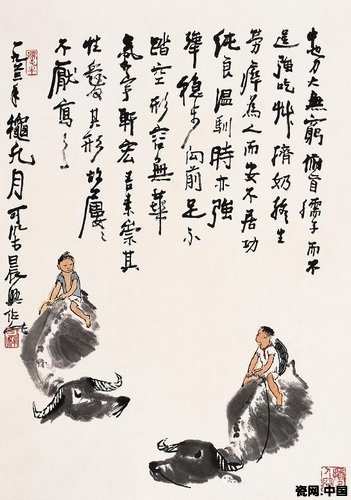 牛也力大無窮俯首孺子而不
逞強吃艸擠奶終生
勞瘁為人而安不居功
純良溫馴時亦強
犟穩步向前足不
踏空形容無華
氣宇軒宏吾素崇其
性愛其形故屢〻
不厭寫之
一九六三年穐九月可染晨興作
瓷网·中国